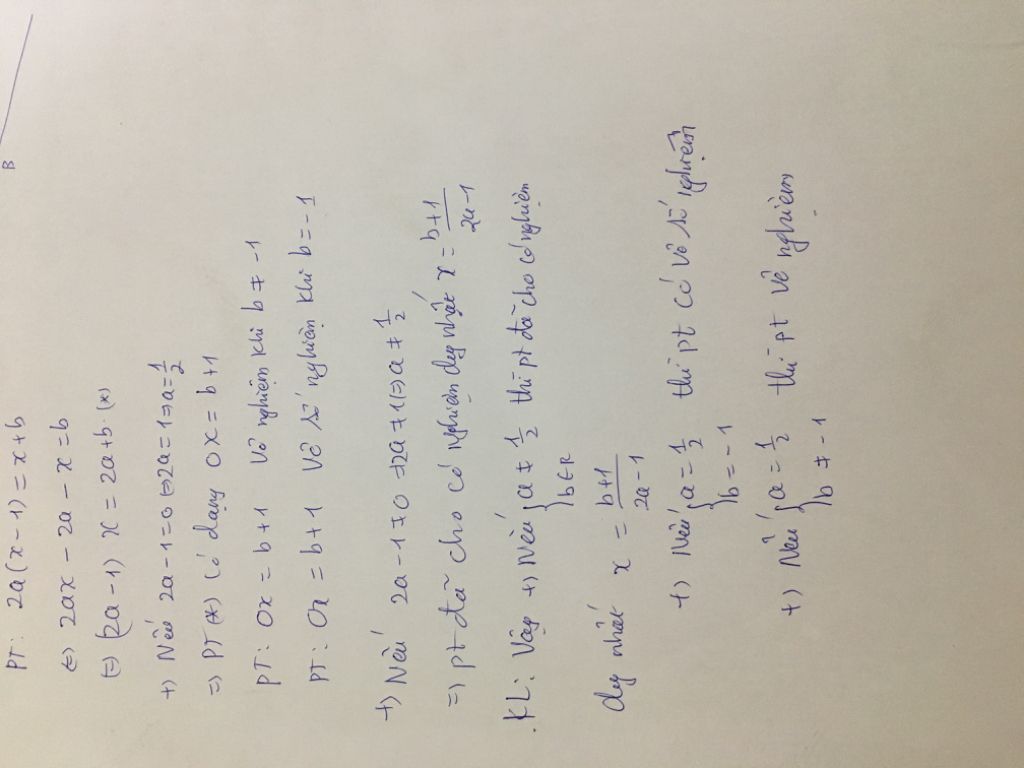 B
PT: 2a(x-1) = x+b
(=) 2ax - 2a - x = b
(=) (2a-1) x = 2a+b. (*)
+) Nếu 2a-1=0 (=) 2a=1 => a = 1/2
=) PT(*) có dạng 0x = b+1
PT: 0x = b+1 Vô nghiệm khi b ≠ -1
PT: 0x = b+1 Vô số nghiệm khi b = -1
+) Nếu 2a-1 ≠ 0 => 2a ≠ 1 (=) a ≠ 1/2
=) pt đã cho có nghiệm duy nhất x = (b+1)/(2a-1)
KL: Vậy +) Nếu { a ≠ 1/2 thì pt đã cho có nghiệm
b ∈ R
duy nhất x = (b+1)/(2a-1)
+) Nếu { a = 1/2 thì pt có vô số nghiệm
b = -1
+) Nếu { a = 1/2 thì pt vô nghiệm
b ≠ -1